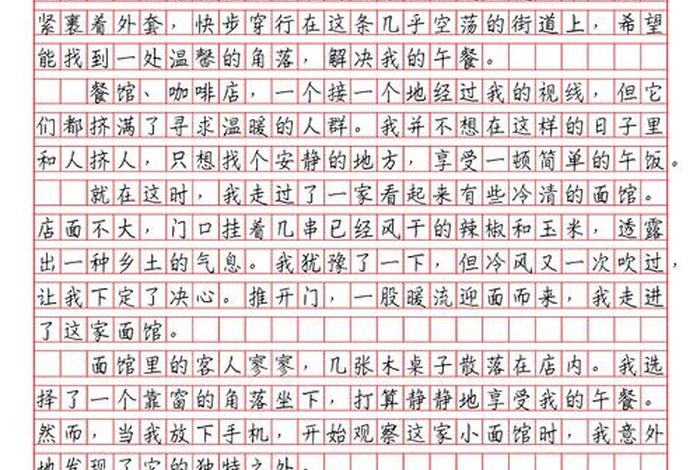 紧裹着外套，快步穿行在这条几乎空荡的街道上，希望
能找到一处温馨的角落，解决我的午餐。
餐馆、咖啡店，一个接一个地经过我的视线，但它
们都挤满了寻求温暖的人群。我并不想在这样的日子里
和人挤人，只想找个安静的地方，享受一顿简单的午饭。
就在这时，我走过了一家看起来有些冷清的面馆。
店面不大，门口挂着几串已经风干的辣椒和玉米，透露
出一种乡土的气息。我犹豫了一下，但冷风又一次吹过，
让我下定了决心。推开门，一股暖流迎面而来，我走进
了这家面馆。
面馆里的客人寥寥，几张木桌子散落在店内。我选
择了一个靠窗的角落坐下，打算静静地享受我的午餐。
然而，当我放下手机，开始观察这家小面馆时，我意外
地发现了它的独特之处。